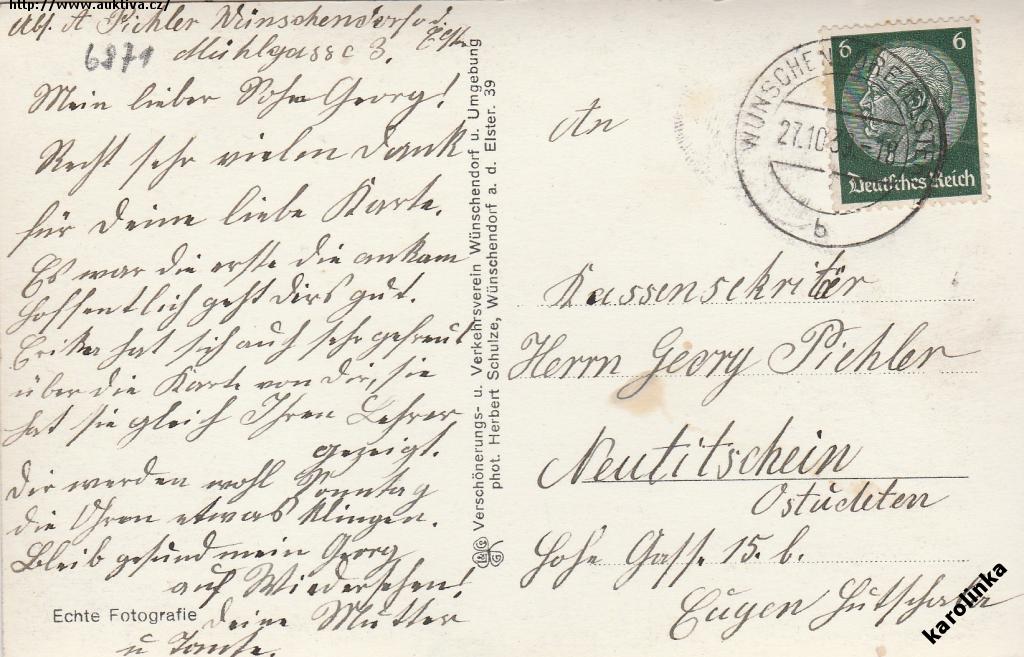 https://www.auktiva.cz/
Abs. A Pichler Wünschendorf a. d. Elster
Mühlgasse 3.
6871
Mein lieber Sohn Georg!
Recht sehr vielen Dank
für Deine liebe Karte.
Es war die erste die ankam
hoffentlich geht dirs gut.
Erika hat sich auch sehr gefreut
über die Karte von Dir, sie
hat sie gleich Ihren Lehrer
gezeigt.
Dir werden wohl Sonntag
die Ohren etwas klingen.
Bleib gesund mein Georg
auf Wiedersehen!
Deine Mutter
u Tante.
Echte Fotografie
Verschönerungs- u. Verkehrsverein Wünschendorf u. Umgebung
phot. Herbert Schulze, Wünschendorf a. d. Elster. 39
An
WÜNSCHENDORF (ELSTER)
27.10.39.-18
b
6 6
Deutsches Reich
Kassensekritär
Herrn Georg Pichler
Neutitschein
Ostudeten
Hohe Gasse 15. b.
Eugen
karolinka